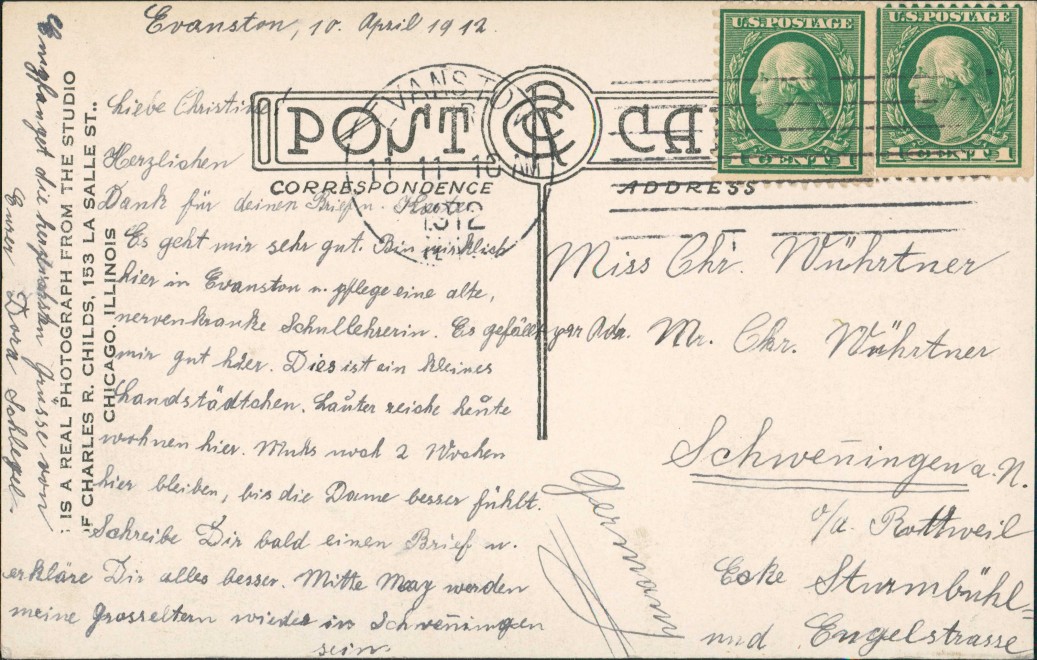 Evanston, 10. April 1912.
Liebe Christine!
Herzlichen
Dank für deinen Brief u. Karte.
Es geht mir sehr gut. Bin wirklich
hier in Evanston u. pflege eine alte,
nervenkranke Schullehrerin. Es gefällt
mir gut hier. Dies ist ein kleines
Landstädtchen. Lauter reiche Leute
wohnen hier. Muks noch 2 Wochen
hier bleiben, bis die Dame besser fühlt.
Schreibe Dir bald einen Brief u.
erkläre Dir alles besser. Mitte May werden
meine Grosseltern wieder in Schweñingen
sein.
Empfangt die herzlichsten Grüsse von
Eurer Dora Schlegel.
IS A REAL PHOTOGRAPH FROM THE STUDIO
OF CHARLES R. CHILDS, 153 LA SALLE ST.,
CHICAGO, ILLINOIS
POST CA
CORRESPONDENCE
ADDRESS
CRC
EVANSTON
11-10 AM
1912
ILL.
U.S. POSTAGE
1 CENT 1
U.S. POSTAGE
1 CENT 1
Miss Chr. Würtner
Adr. Mr. Chr. Würtner
Schweñingen a. N.
o/a. Rottweil
Ecke Sturmbühl=
und Engelstrasse
Germany